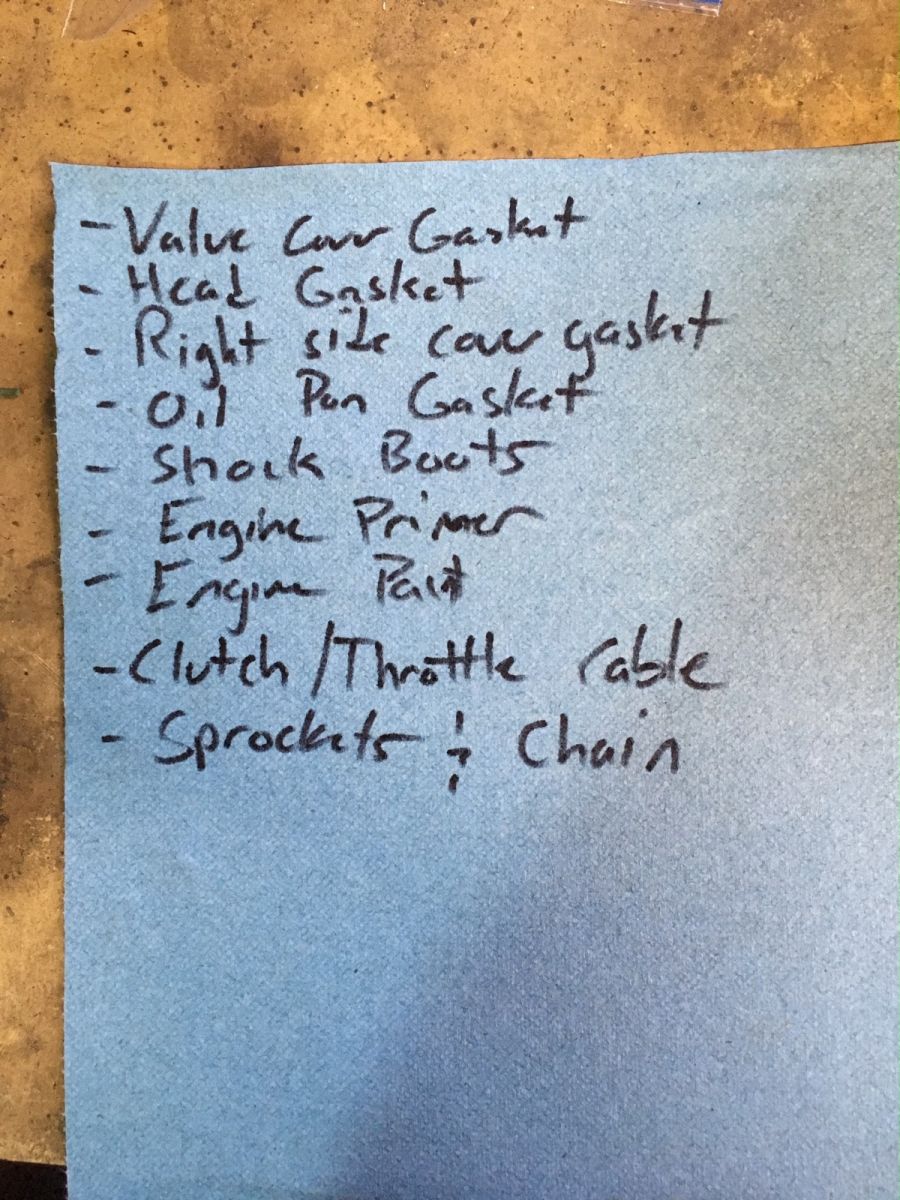 - Valve Cover Gasket
- Head Gasket
- Right side cover gasket
- Oil Pan Gasket
- Shock Boots
- Engine Primer
- Engine Paint
- Clutch/Throttle Cable
- Sprockets & Chain